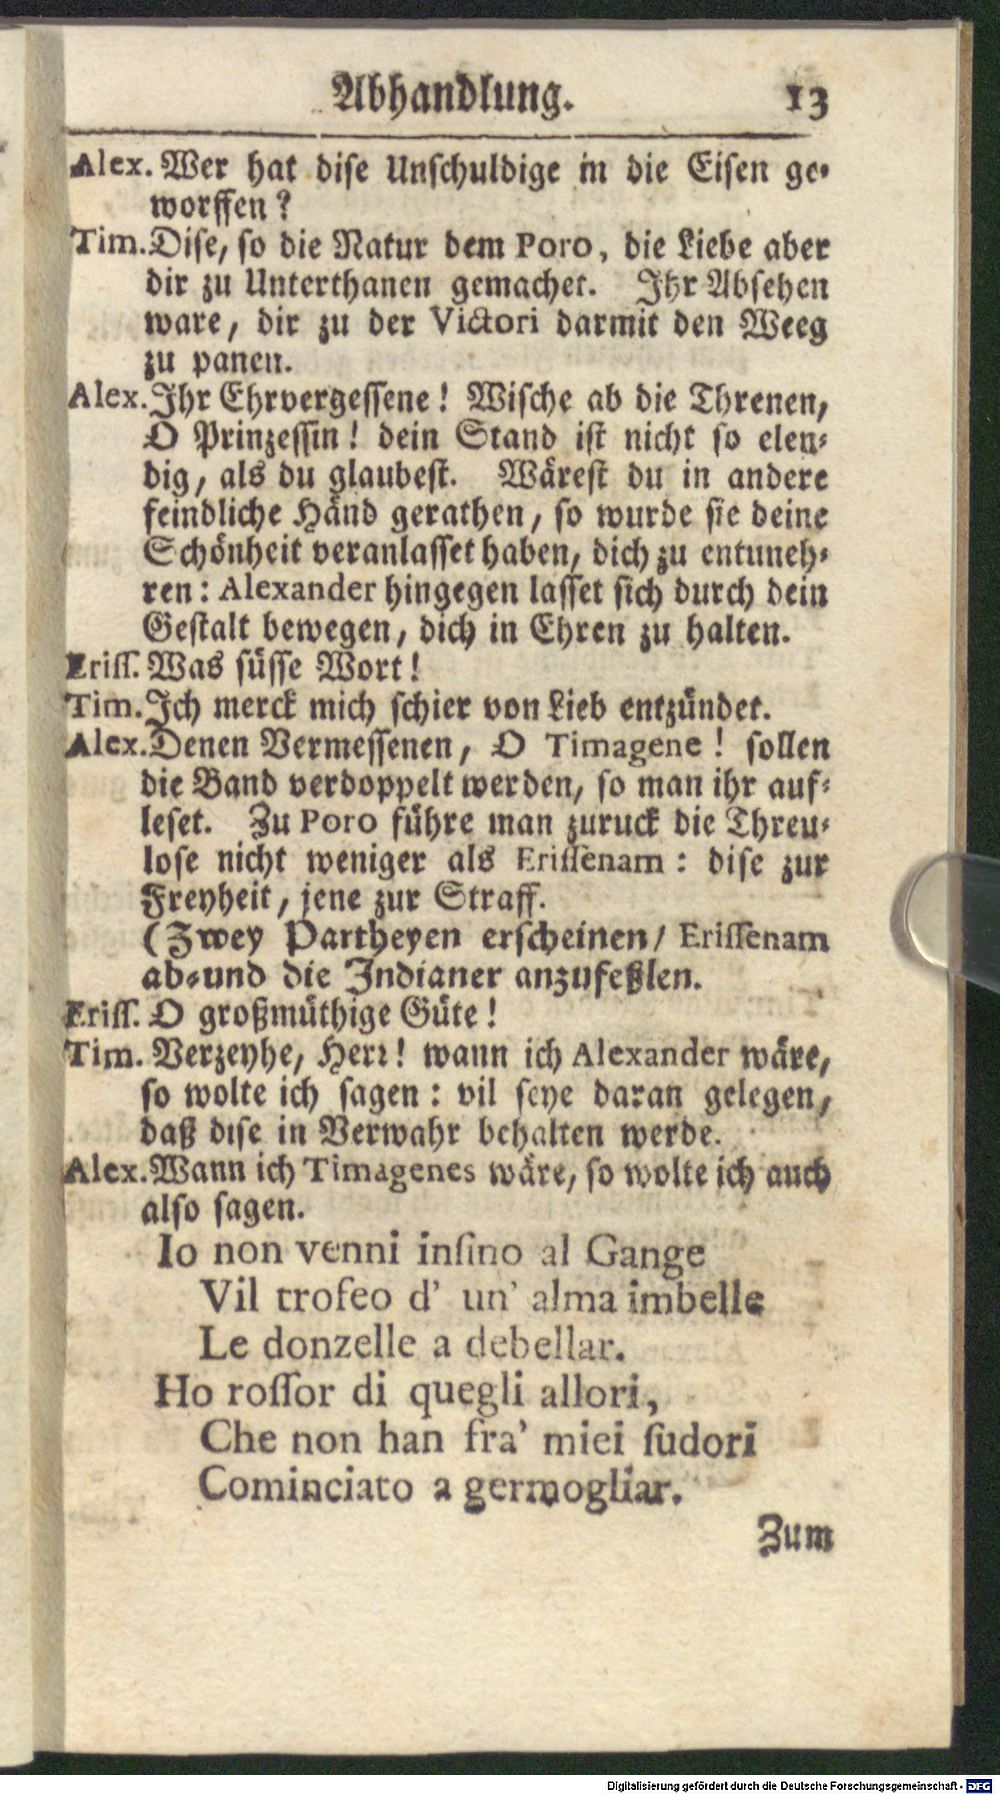 Abhandlung. 13
Alex. Wer hat dise Unschuldige in die Eisen ge-
worffen?
Tim. Dise, so die Natur dem Poro, die Liebe aber
dir zu Unterthanen gemachet. Ihr Absehen
ware, dir zu der Victori darmit den Weeg
zu panen.
Alex. Ihr Ehrvergessene! Wische ab die Threnen,
O Prinzessin! dein Stand ist nicht so elen-
dig, als du glaubest. Wärest du in andere
feindliche Händ gerathen, so wurde sie deine
Schönheit veranlasset haben, dich zu entuneh-
ren: Alexander hingegen lasset sich durch dein
Gestalt bewegen, dich in Ehren zu halten.
Eriss. Was süsse Wort!
Tim. Ich merck mich schier von Lieb entzündet.
Alex. Denen Vermessenen, O Timagene! sollen
die Band verdoppelt werden, so man ihr auf-
leset. Zu Poro führe man zuruck die Threu-
lose nicht weniger als Erissenam: dise zur
Freyheit, jene zur Straff.
(Zwey Partheyen erscheinen/ Erissenam
ab-und die Indianer anzufeßlen.
Eriss. O großmüthige Güte!
Tim. Verzeyhe, Herr! wann ich Alexander wäre,
so wolte ich sagen: vil seye daran gelegen,
daß dise in Verwahr behalten werde.
Alex. Wann ich Timagenes wäre, so wolte ich auch
also sagen.
Io non venni insino al Gange
Vil trofeo d' un' alma imbelle
Le donzelle a debellar.
Ho rossor di quegli allori,
Che non han fra' miei sudori
Cominciato a germogliar.
Zum
Digitalisierung gefördert durch die Deutsche Forschungsgemeinschaft - DFG